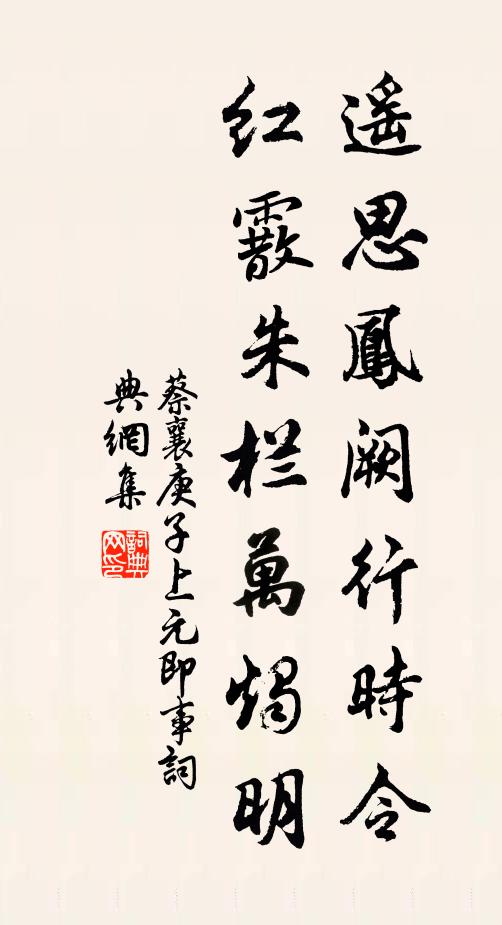 遥思鳳阙行時令
紅霰朱栏萬燭明
蔡襄庚子上元即事詞
典網集
詞典网印